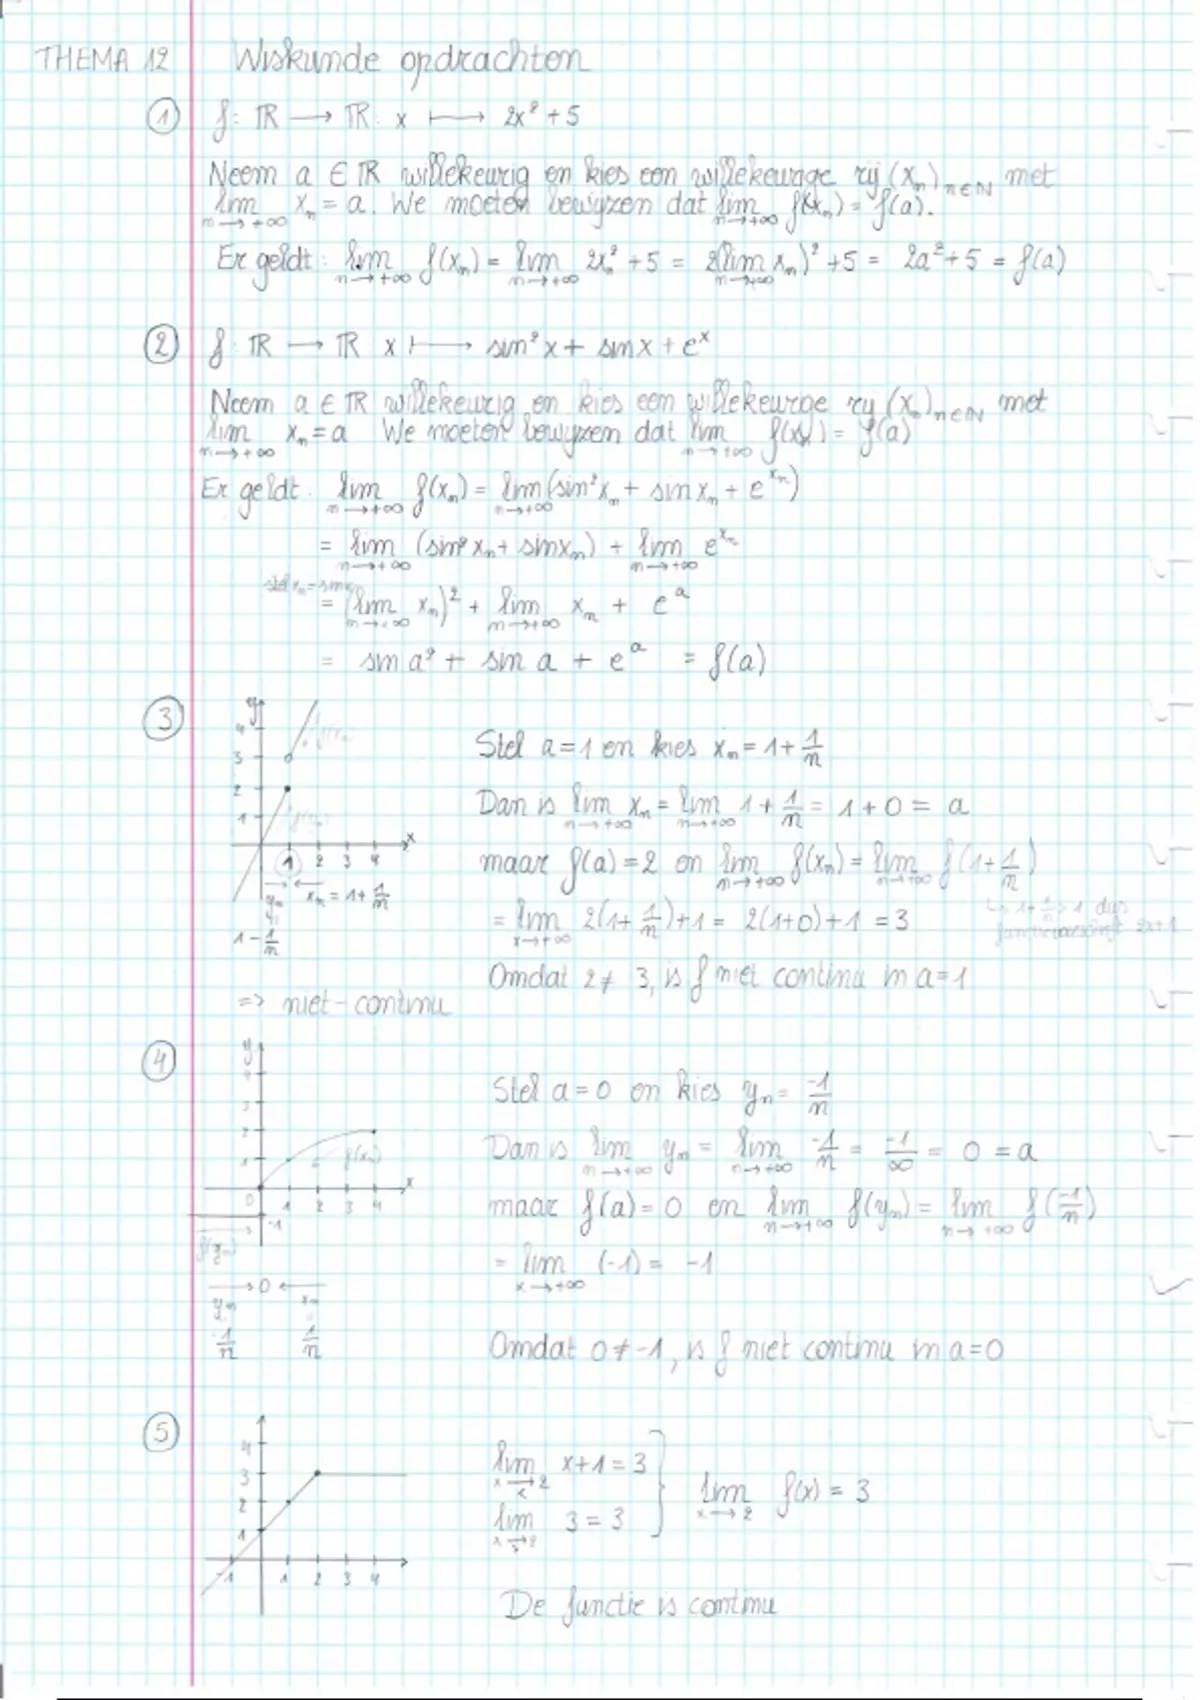 THEMA 12 Wiskunde opdrachten
① f: ℝ → ℝ: x ↦ 2x² + 5
Neem a ∈ ℝ willekeurig en kies een willekeurige rij (xₙ)ₙ∈ℕ met
lim n→+∞ xₙ = a. We moeten bewijzen dat lim n→+∞ f(xₙ) = f(a).
Er geldt: lim n→+∞ f(xₙ) = lim n→+∞ 2xₙ² + 5 = 2(lim n→+∞ xₙ)² + 5 = 2a² + 5 = f(a)
② f: ℝ → ℝ x ↦ sin²x + sin x + eˣ
Neem a ∈ ℝ willekeurig en kies een willekeurige rij (xₙ)ₙ∈ℕ met
lim n→+∞ xₙ = a We moeten bewijzen dat lim n→+∞ f(xₙ) = f(a)
Er geldt: lim n→+∞ f(xₙ) = lim n→+∞ (sin²xₙ + sin xₙ + e^xₙ)
= lim n→+∞ (sin²xₙ + sin xₙ) + lim n→+∞ e^xₙ
stel xₙ = sin xₙ
= (lim n→+∞ xₙ)² + lim n→+∞ xₙ + eᵃ
= sin a² + sin a + eᵃ = f(a)
③ y 4 3 2 1 f(xₙ) f(yₙ) x
1 2 3 4
yₙ xₙ = 1 + 1/n
1 - 1/n
=> niet-continu
Stel a = 1 en kies xₙ = 1 + 1/n
Dan is lim n→+∞ xₙ = lim n→+∞ 1 + 1/n = 1 + 0 = a
maar f(a) = 2 en lim n→+∞ f(xₙ) = lim n→+∞ f(1 + 1/n)
↳ 1 + 1/n > 1 dus
functievoorschrift 2x+1
= lim x→+∞ 2(1 + 1/n) + 1 = 2(1+0) + 1 = 3
Omdat 2 ≠ 3, is f niet continu in a = 1
④ y 4 3 2 1 f(xₙ) x
0 1 2 3 4
-1
f(yₙ)
→ 0 ←
yₙ xₙ
-1/n 1/n
Stel a = 0 en kies yₙ = -1/n
Dan is lim n→+∞ yₙ = lim n→+∞ -1/n = -1/∞ = 0 = a
maar f(a) = 0 en lim n→+∞ f(yₙ) = lim n→+∞ f(-1/n)
= lim x→+∞ (-1) = -1
Omdat 0 ≠ -1, is f niet continu in a = 0
⑤ 4 3 2 1
-1 1 2 3 4
lim x→2 < x + 1 = 3
lim x→2 > 3 = 3
} lim x→2 f(x) = 3
De functie is continu